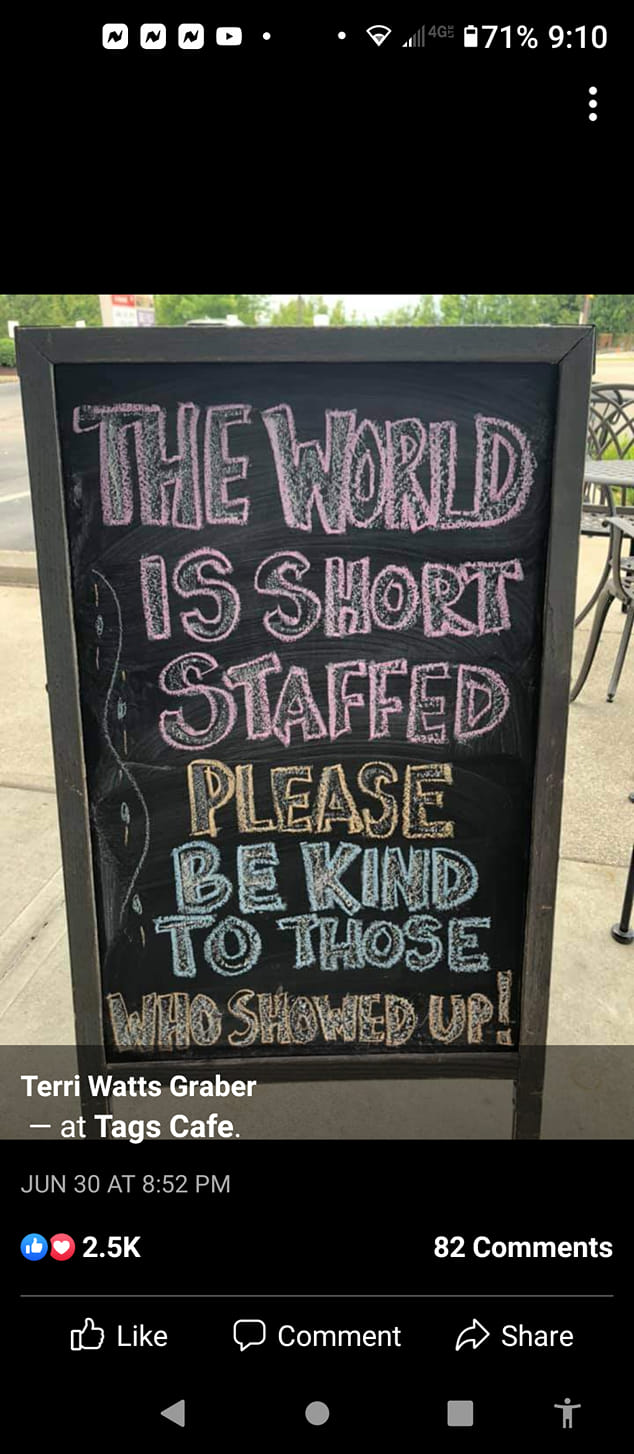 71% 9:10
THE WORLD
IS SHORT
STAFFED
PLEASE
BE KIND
TO THOSE
WHO SHOWED UP!
Terri Watts Graber
— at Tags Cafe.
JUN 30 AT 8:52 PM
2.5K 82 Comments
Like Comment Share